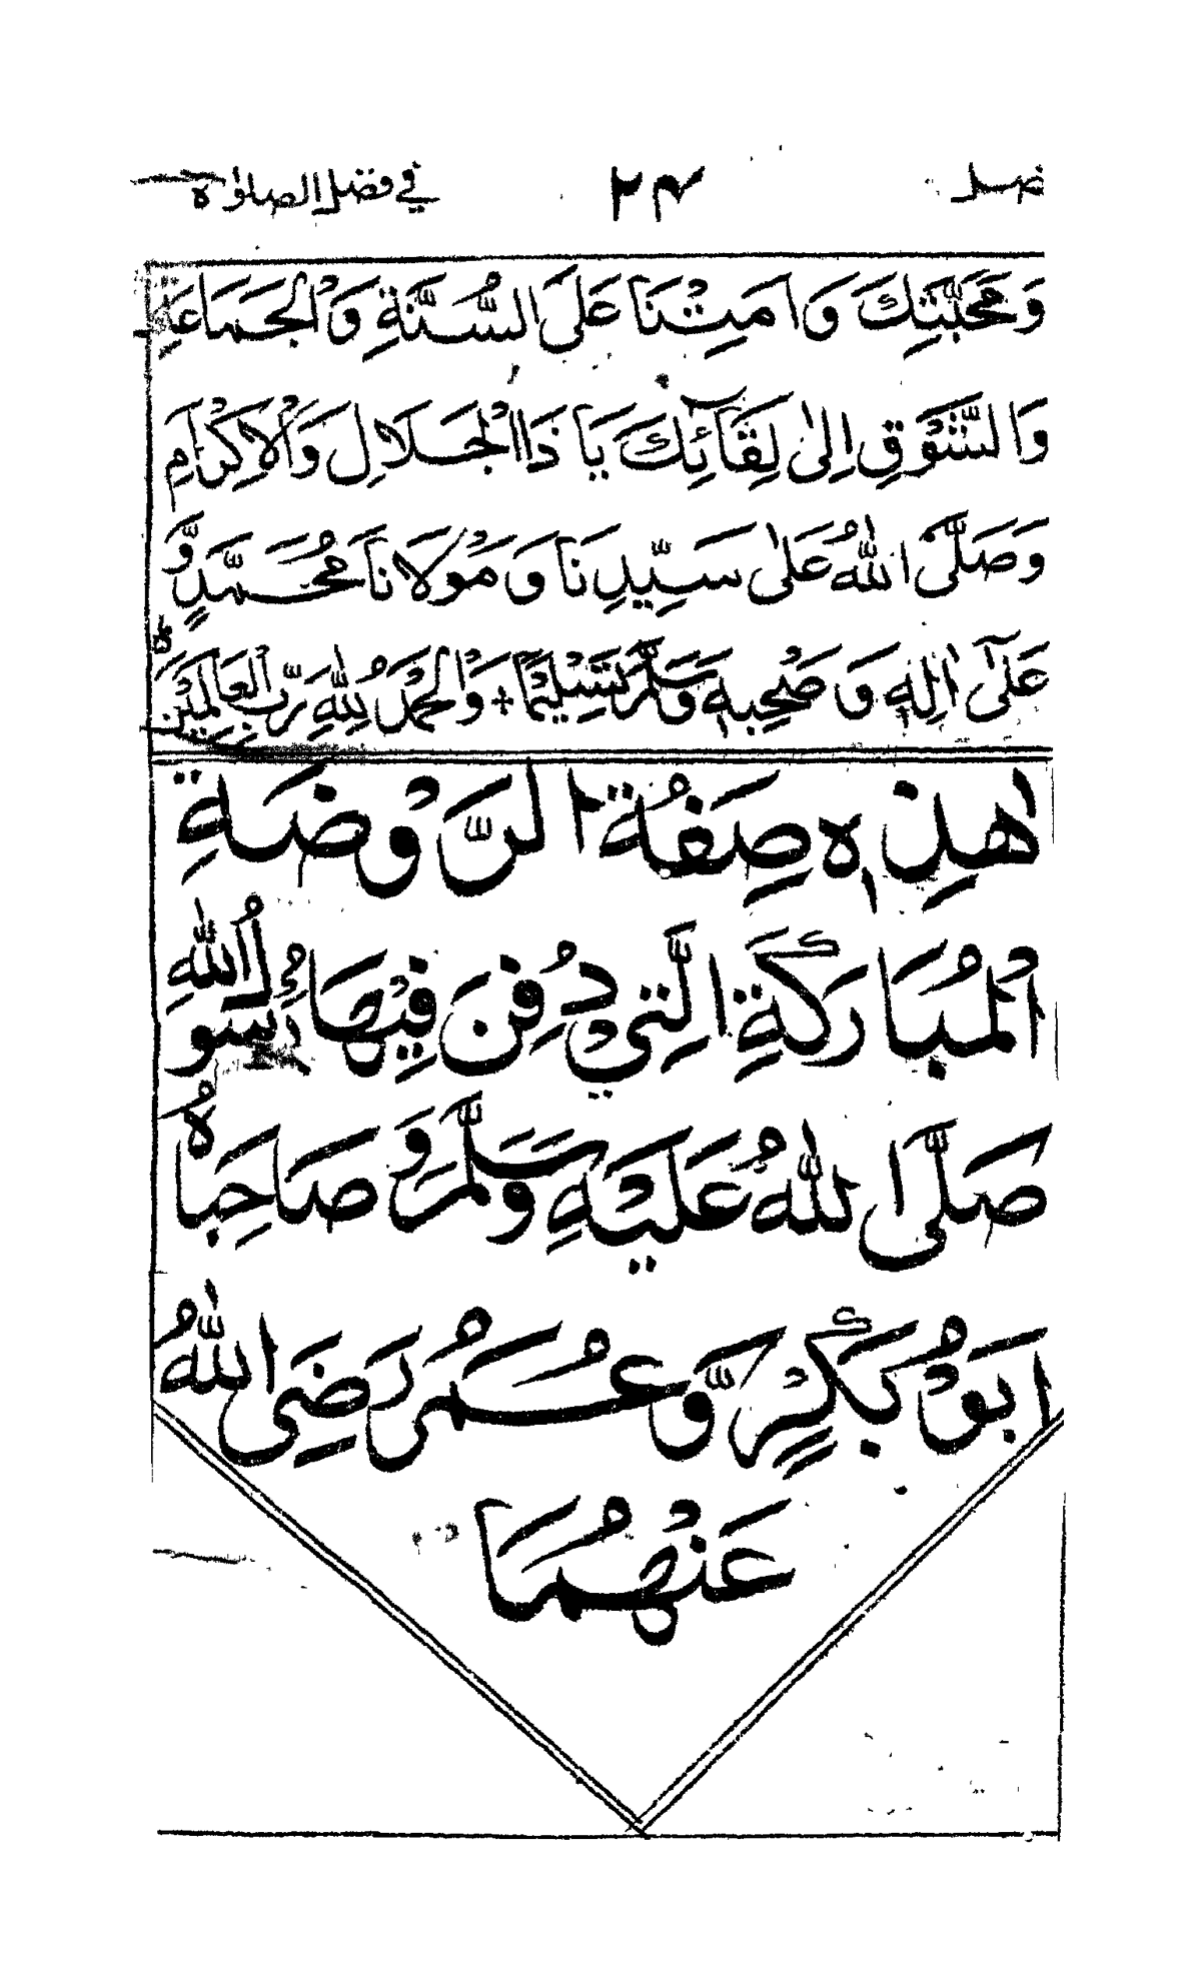 فصل ٢٤ في فضل الصلوٰة
وَمَحَبَّتِكَ وَاَمِتْنَا عَلَى السُّنَّةِ وَالْجَمَاعَةِ
وَالشَّوْقِ اِلٰى لِقَآئِكَ يَا ذَا الْجَلَالِ وَالْاِكْرَامِ
وَصَلَّى اللّٰهُ عَلٰى سَيِّدِنَا وَمَوْلَانَا مُحَمَّدٍ وَّ
عَلٰٓى اٰلِهٖ وَصَحْبِهٖ وَسَلَّمَ تَسْلِيْمًا + وَالْحَمْدُ لِلّٰهِ رَبِّ الْعَالَمِيْنَ
هٰذِهٖ صِفَةُ الرَّوْضَةِ
الْمُبَارَكَةِ الَّتِيْ دُفِنَ فِيْهَا رَسُوْلُ اللّٰهِ
صَلَّى اللّٰهُ عَلَيْهِ وَسَلَّمَ وَصَاحِبَاهُ
اَبُوْبَكْرٍ وَّعُمَرُ رَضِىَ اللّٰهُ
عَنْهُمَا